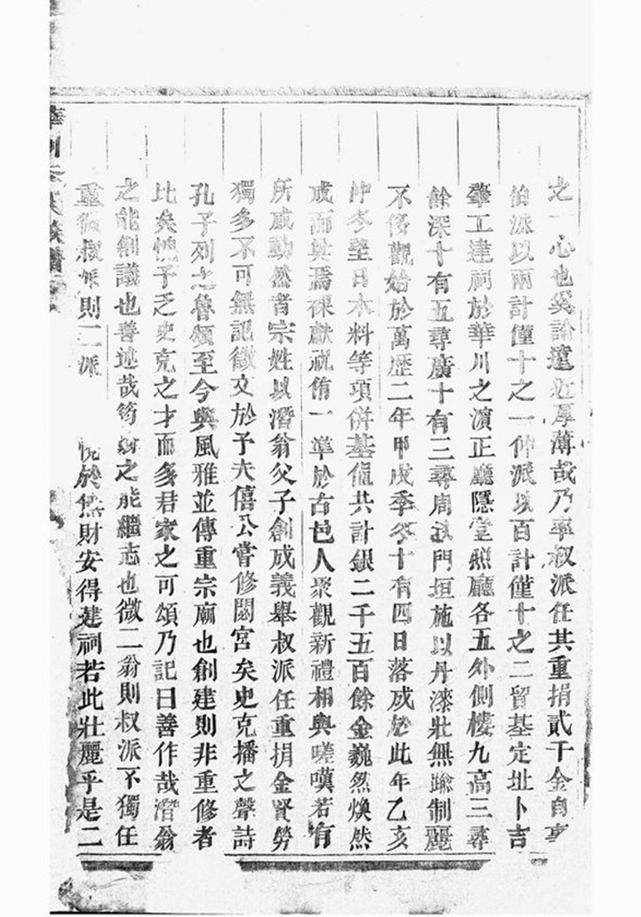 之一心也奚論遠近厚薄哉乃率叔派任其重捐貳千金自事
伯派以兩計僅十之一仲派以百計僅十之二貿基定址卜吉
肇工建祠於華川之濵正廳隱堂照廳各五外側樓九高三尋
餘深十有五尋廣十有三尋周 門垣施以丹漆壯無踰制麗
不侈觀始於萬歷二年甲戌季冬十有四日落成於此年乙亥
仲冬 日木料等項併基値共計銀二千五百餘金巍然煥然
成而奠焉祼獻祝侑一準於古邑人聚觀新禮相與嗟嘆若有
所感動然者宗姓以潛翁父子創成義舉叔派任重捐金賢勞
獨多不可無記徵文於予夫僖公嘗修閟宮矣史克播之聲詩
孔子列之魯頌至今與風雅並傳重宗廟也創建則非重修者
比矣愧予乏史克之才而多君家之可頌乃記曰善作哉潛翁
之能創議也善述哉筠 之能繼志也微二翁則叔派不獨任
重微叔派則二派 悅於 財安得建祠若此壯麗乎是二